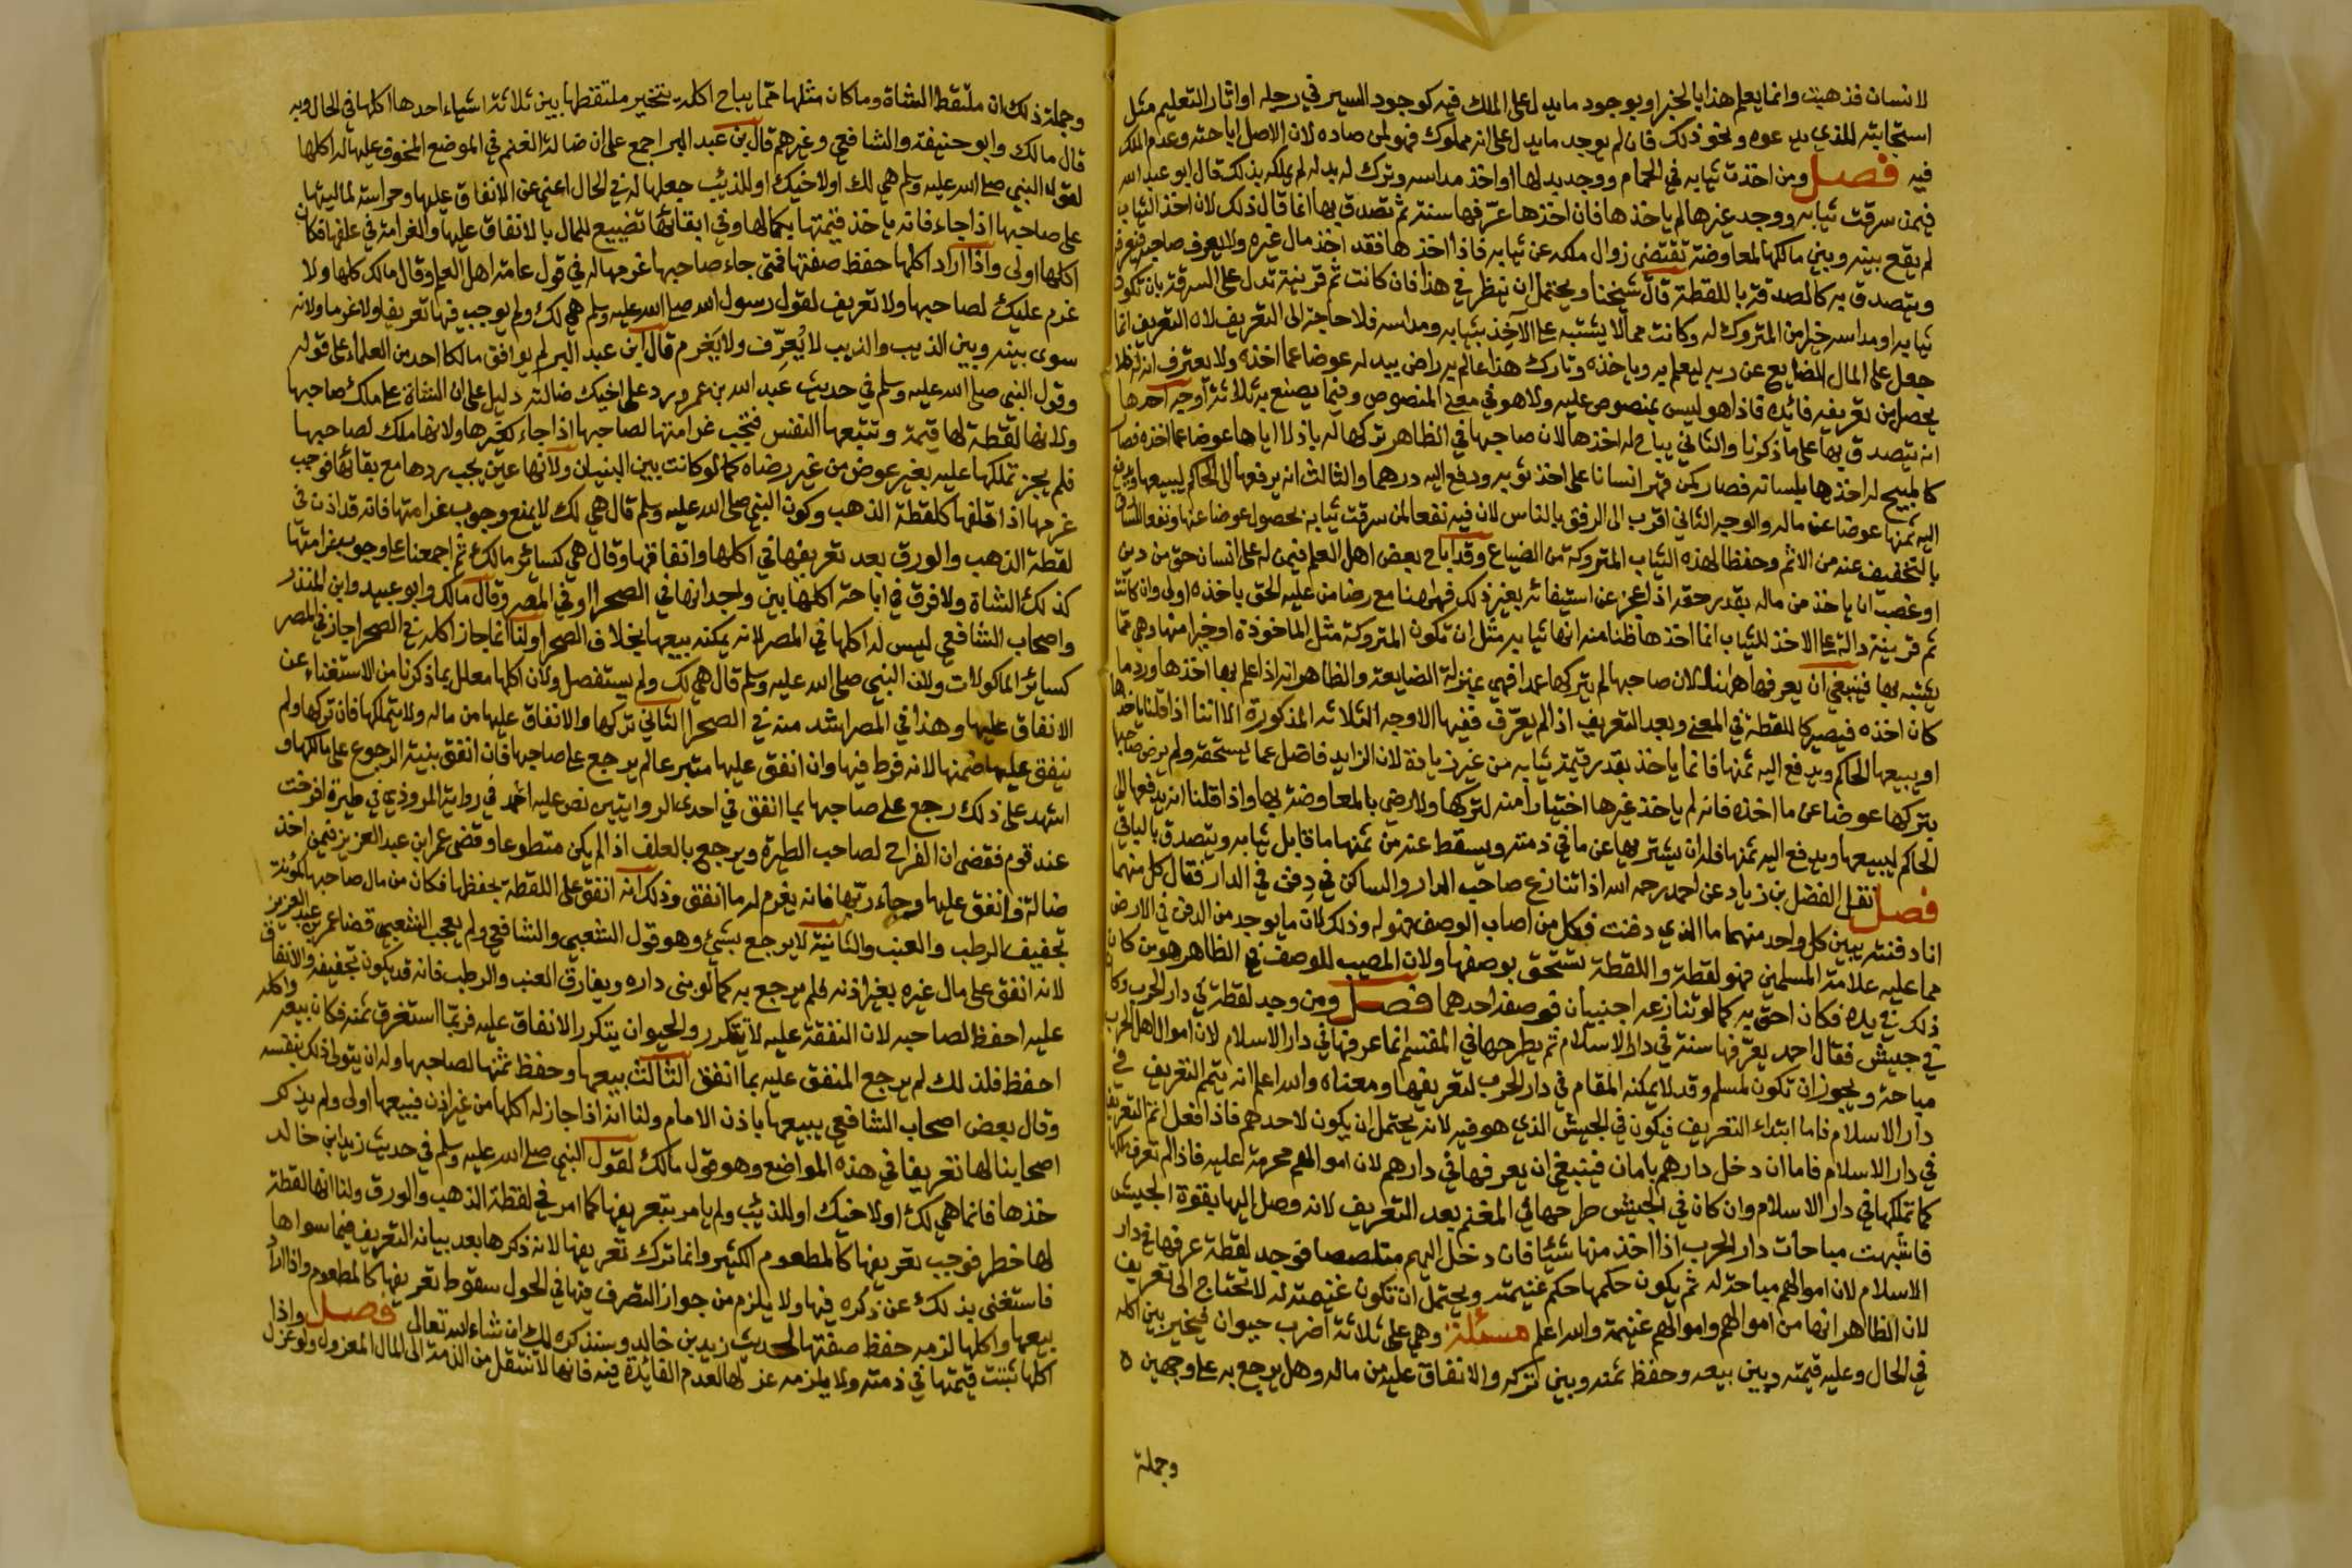 لانسان فذهبت وانما يعلم هذا بالخبر او بوجود ما يدل على الملك فيه كوجود السير في رجله او اثار التعليم مثل
استجابته للذي يدعوه ونحو ذلك فان لم يوجد ما يدل على انه مملوك فهو لمن صاده لان الاصل اباحته وعدم الملك
فيه فصل ومن اخذت ثيابه في الحمام ووجد بدلها او اخذ مداسه وترك له بدله لم يملكه بذلك قال ابو عبد الله
فيمن سرقت ثيابه ووجد غيرها لم ياخذها فان اخذها عرفها سنة ثم تصدق بها انما قال ذلك لان اخذ الثياب
لم يقع بينه وبين مالكها معاوضة تقتضي زوال ملكه عن ثيابه فاذا اخذها فقد اخذ مال غيره ولا يعرف صاحبه فيعرفه
ويتصدق به كالصدقة باللقطة قال شيخنا ويحتمل ان ينظر في هذا فان كانت ثم قرينة تدل على السرقة بان تكون
ثيابه او مداسه خيرا من المتروك له وكانت مما لا يشتبه على الآخذ بثيابه ومداسه فلا حاجة الى التعريف لان التعريف انما
جعل على المال الضايع عن ربه ليعلم به وياخذه وتارك هذا عالم به راض ببدله عوضا عما اخذه ولا يعترف انه له فلا
يحصل من تعريفه فائدة فاذا هو ليس بمنصوص عليه ولا هو في معنى المنصوص وفيما يصنع به ثلاثة اوجه احدها
انه يتصدق بها على ما ذكرنا والثاني يباح له اخذها لان صاحبها في الظاهر تركها له باذلا اياها عوضا عما اخذه فصار
كالمبيح له اخذها بلسانه فصار كمن قهر انسانا على اخذ ثوبه ودفع اليه درهما والثالث انه يرفعها الى الحاكم ليبيعها ويدفع
اليه ثمنها عوضا عن ماله والوجه الثاني اقرب الى الرفق بالناس لان فيه نفعا لمن سرقت ثيابه بحصول عوض عنها ونفعا للسارق
بالتخفيف عنه من الاثم وحفظا لهذه الثياب المتروكة من الضياع وقد اباح بعض اهل العلم فيمن له على انسان حق من دين
او غصب ان ياخذ من ماله بقدر حقه اذا عجز عن استيفائه بغير ذلك فههنا مع رضا من عليه الحق ياخذه اولى وان كانت
ثم قرينة دالة على الاخذ للثياب انما اخذها ظنا منه انها ثيابه مثل ان تكون المتروكة مثل الماخوذة او خيرا منها وهي مما
يشتبه بها فينبغي ان يعرفها ههنا لان صاحبها لم يتركها عمدا فهي بمنزلة الضايعة والظاهر انه اذا علم بها اخذها ورد ما
كان اخذه فيصير كاللقطة في المعنى وبعد التعريف اذا لم يعرف ففيها الاوجه الثلاثة المذكورة الا اننا اذا قلنا ياخذها
او يبيعها الحاكم ويدفع اليه ثمنها فانما ياخذ بقدر قيمة ثيابه من غير زيادة لان الزايد فاضل عما يستحقه ولم يرض صاحبها
بتركها عوضا عن ما اخذه فانه لم ياخذ غيرها اختيارا منه لتركها ولا رضي بالمعاوضة بها واذا قلنا انه يدفعها الى
الحاكم ليبيعها ويدفع اليه ثمنها فله ان يشتريها عن ما في ذمته ويسقط عنه من ثمنها ما قابل ثيابه ويتصدق بالباقي
فصل نقل الفضل بن زياد عن احمد رحمه الله اذا تنازع صاحب الدار والساكن في دفن في الدار فقال كل منهما
انا دفنته يبين كل واحد منهما ما الذي دفنت فكل من اصاب الوصف فهو له وذلك لان ما يوجد من الدفن في الارض
مما عليه علامة المسلمين فهو لقطة واللقطة تستحق بوصفها ولان المصيب للوصف في الظاهر هو من كان
ذلك في يده فكان احق به كما لو تنازعه اجنبيان فوصفه احدهما فصل ومن وجد لقطة في دار الحرب وكان
في جيش فقال احمد يعرفها سنة في دار الاسلام ثم يطرحها في المقسم انما عرفها في دار الاسلام لان اموال اهل الحرب
مباحة ويجوز ان تكون لمسلم وقد لا يمكنه المقام في دار الحرب لتعريفها ومعناه والله اعلم انه يتمم التعريف في
دار الاسلام فاما ابتداء التعريف فيكون في الجيش الذي هو فيه لانه يحتمل ان يكون لاحدهم فاذا فعل اتم التعريف
في دار الاسلام فاما ان دخل دارهم بامان فينبغي ان يعرفها في دارهم لان اموالهم محرمة عليه فاذا لم تعرف ملكها
كما تملكها في دار الاسلام وان كان في الجيش طرحها في المغنم بعد التعريف لانه وصل اليها بقوة الجيش
فاشبهت مباحات دار الحرب اذا اخذ منها شيئا فان دخل اليهم متلصصا فوجد لقطة عرفها في دار
الاسلام لان اموالهم مباحة له ثم يكون حكمها حكم غنيمته ويحتمل ان تكون غنيمة له لا تحتاج الى تعريف
لان الظاهر انها من اموالهم واموالهم غنيمة والله اعلم مسئلة وهي على ثلاثة اضرب حيوان فيخير بين اكله
في الحال وعليه قيمته وبين بيعه وحفظ ثمنه وبين تركه والانفاق عليه من ماله وهل يرجع به على وجهين ه
وجملة
وجملة ذلك ان ملتقط الشاة وما كان مثلها مما يباح اكله يتخير ملتقطها بين ثلاثة اشياء احدها اكلها في الحال وبه
قال مالك وابو حنيفة والشافعي وغيرهم قال بن عبد البر اجمع على ان ضالة الغنم في الموضع المخوف عليها له اكلها
لقول النبي صلى الله عليه وسلم هي لك او لاخيك او للذئب جعلها له في الحال اغنى عن الانفاق عليها وحراسة لماليتها
على صاحبها اذا جاء فانه ياخذ قيمتها بكمالها وفي ابقائها تضييع للمال بالانفاق عليها والغرامة في علفها فكان
اكلها اولى واذا اراد اكلها حفظ صفتها فمتى جاء صاحبها غرمها له في قول عامة اهل العلم وقال مالك كلها ولا
غرم عليك لصاحبها ولا تعريف لقول رسول الله صلى الله عليه وسلم هي لك ولم يوجب فيها تعريفا ولا غرما ولانه
سوى بينه وبين الذيب والذيب لا يُعرِّف ولا يغرم قال ابن عبد البر لم يوافق مالكا احد من العلماء على قوله
وقول النبي صلى الله عليه وسلم في حديث عبد الله بن عمرو رد على اخيك ضالته دليل على ان الشاة على ملك صاحبها
ولانها لقطة لها قيمة وتتبعها النفس فتجب غرامتها لصاحبها اذا جاء كغيرها ولانها ملك لصاحبها
فلم يجز تملكها عليه بغير عوض من غير رضاه كما لو كانت بين البنيان ولانها عين يجب ردها مع بقائها فوجب
غرمها اذا اتلفها كلقطة الذهب وكون النبي صلى الله عليه وسلم قال هي لك لا يمنع وجوب غرامتها فانه قد اذن في
لقطة الذهب والورق بعد تعريفها في اكلها وانفاقها وقال هي كسائر مالك ثم اجمعنا على وجوب غرامتها
كذلك الشاة ولا فرق في اباحة اكلها بين وجدانها في الصحرا او في المصر وقال مالك وابو عبيد وابن المنذر
واصحاب الشافعي ليس له اكلها في المصر لانه يمكنه بيعها بخلاف الصحرا ولنا انما جاز اكله في الصحرا جاز في المصر
كسائر الماكولات ولان النبي صلى الله عليه وسلم قال هي لك ولم يستفصل ولان اكلها معلل بما ذكرنا من الاستغناء عن
الانفاق عليها وهذا في المصر اشد منه في الصحرا الثاني تركها والانفاق عليها من ماله ولا يتملكها فان تركها ولم
ينفق عليها ضمنها لانه فرط فيها وان انفق عليها متبرعا لم يرجع على صاحبها فان انفق بنية الرجوع على مالكها و
اشهد على ذلك رجع على صاحبها بما انفق في احدى الروايتين نص عليه احمد في رواية المروذي في طيرة افرخت
عند قوم فقضى ان الفراخ لصاحب الطيرة ويرجع بالعلف اذا لم يكن متطوعا وقضى عمر ابن عبد العزيز فيمن اخذ
ضالة فانفق عليها وجاء ربها فانه يغرم له ما انفق وذلك انه انفق على اللقطة بحفظها فكان من مال صاحبها كمؤنة
تجفيف الرطب والعنب والثانية لا يرجع بشيئ وهو قول الشعبي والشافعي ولم يعجب الشعبي قضا عمر بن عبد العزيز
لانه انفق على مال غيره بغير اذنه فلم يرجع به كما لو بنى داره ويفارق العنب والرطب فانه قد يكون تجفيفه والانفاق
عليه احفظ لصاحبه لان النفقة عليه لا تتكرر والحيوان يتكرر الانفاق عليه فربما استغرق ثمنه فكان بيعه واكله
احفظ فلذلك لم يرجع المنفق عليه بما انفق الثالث بيعها وحفظ ثمنها لصاحبها وله ان يتولى ذلك بنفسه
وقال بعض اصحاب الشافعي يبيعها باذن الامام ولنا انه اذا جاز له اكلها من غير اذن فبيعها اولى ولم يذكر
اصحابنا لها تعريفا في هذه المواضع وهو قول مالك لقول النبي صلى الله عليه وسلم في حديث زيد ابن خالد
خذها فانما هي لك او لاخيك او للذئب ولم يامر بتعريفها كما امر في لقطة الذهب والورق ولنا انها لقطة
لها خطر فوجب تعريفها كالمطعوم الكثير وانما ترك تعريفها لانه ذكرها بعد بيانه التعريف فيما سواها
فاستغنى بذلك عن ذكره فيها ولا يلزم من جواز التصرف فيها في الحول سقوط تعريفها كالمطعوم واذا اراد
بيعها واكلها لزمه حفظ صفتها لحديث زيد بن خالد وسنذكره لك ان شاء الله تعالى فصل واذا
اكلها ثبتت قيمتها في ذمته ولا يلزمه عزلها لعدم الفائدة فيه فانها لا تنتقل من الذمة الى المال المعزول ولو عزل